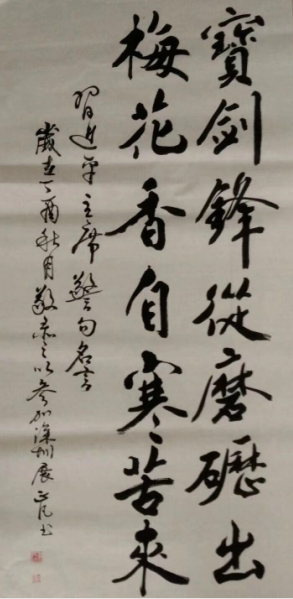 寶劍鋒從磨礪出
梅花香自寒苦來
習近平主席警句名言
歲在丁酉秋月敬录之以參加深圳展 書